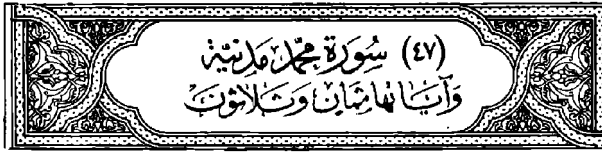 (٤٧) سُورَة مُحَمَّد مَدَنيَّة
وَآيَاتُهَا ثَمَان وَثَلَاثُونَ